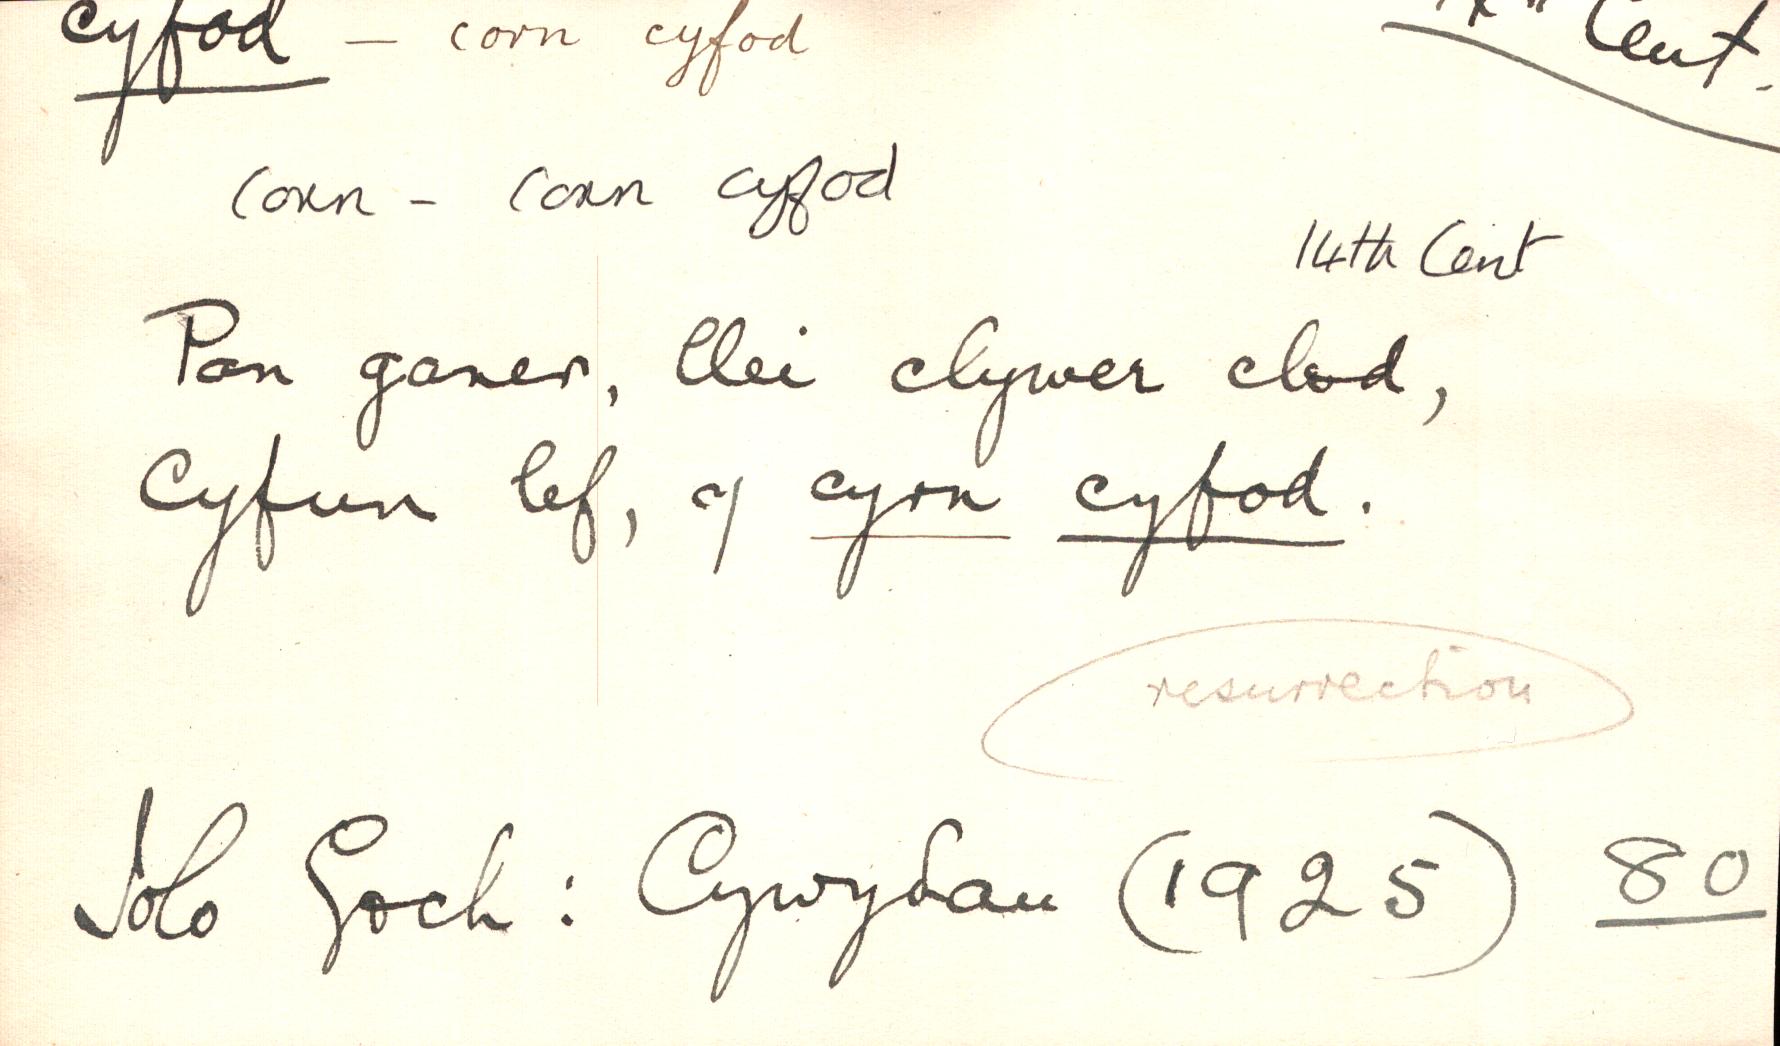 cyfod – corn cyfod Cent.
corn – corn cyfod
14th Cent
Pan ganer, llei clywer clod,
Cyfun lef, y cyrn cyfod.
resurrection
Iolo Goch: Cywyδau (1925) 80